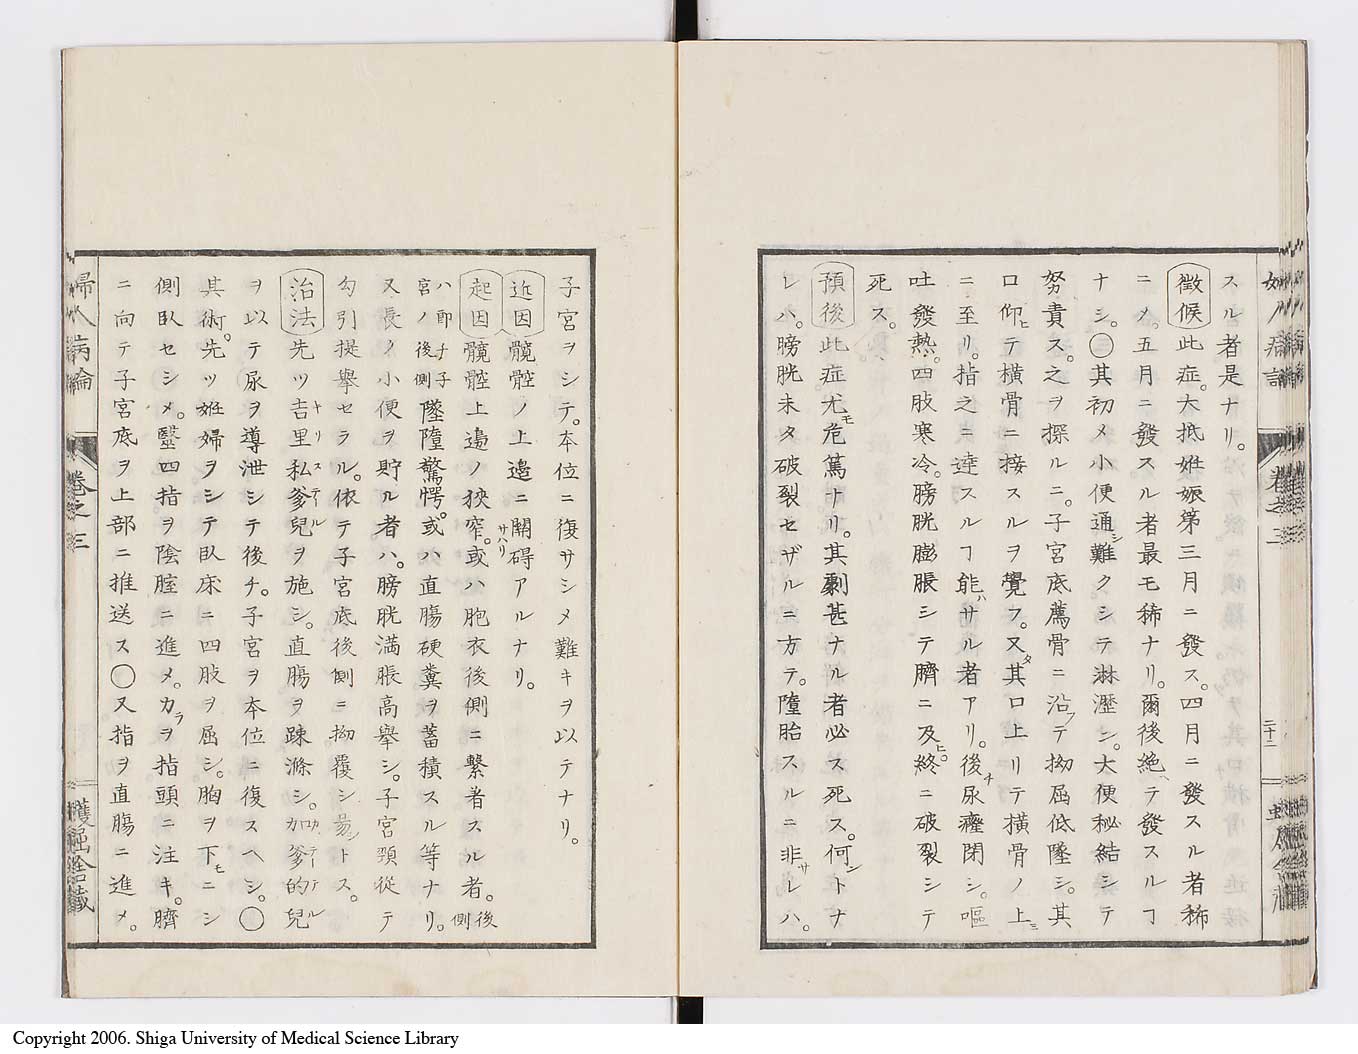 スル者是ナリ。
徴候此症。大抵姙娠第三月ニ發ス。四月ニ發スル者稀
ニメ。五月ニ發スル者最モ稀ナリ。爾後絶ハテ發スルヿ
ナシ。〇其初メ小便通シ難クシテ淋瀝シ。大便秘結シテ
努責ス。之ヲ探ルニ。子宮底薦骨ニ沿フテ拗屈低墜シ。其
口仰ヒテ橫骨ニ接スルヲ覺フ。又タ其口上リテ橫骨ノ上ミ
ニ至リ。指之ニ達スルヿ能ハサル者アリ。後チ尿癃閉シ。嘔
吐發熱。四肢寒冷。膀胱膨脹シテ臍ニ及ヒ。終ニ破裂シテ
死ス。
預後此症。尤モ危篤ナリ。其劇甚ナル者必ス死ス。何ントナ
レハ。膀胱未タ破裂セザルニ方テ。墮胎スルニ非サレハ。
子宮ヲシテ。本位ニ復サシメ難キヲ以テナリ。
近因髖骿ノ上邊ニ關碍サハリアルナリ。
起因髖骿上邊ノ狹窄。或ハ胞衣後側ニ繫着スル者。後側
ハ即チ子宮ノ後側墜墮驚愕。或ハ直腸硬糞ヲ蓄積スル等ナリ。
又長ク小便ヲ貯ル者ハ。膀胱滿脹高擧シ。子宮頸從テ
勾引提擧セラル。依テ子宮底後側ニ拗覆シ易シトス。
治法先ツ吉里私爹兒キリステルヲ施シ。直腸ヲ疎滌シ。加爹的兒カテーテル
ヲ以テ尿ヲ導泄シテ後チ。子宮ヲ本位ニ復スヘシ。〇
其術。先ツ姙婦ヲシテ臥床ニ四肢ヲ屈シ。胸ヲ下モニシ
側臥セシメ。毉四指ヲ陰腟ニ進メ。カラヲ指頭ニ注キ。臍
ニ向テ子宮底ヲ上部ニ推送ス〇又指ヲ直腸ニ進メ。
婦人病論
卷之三